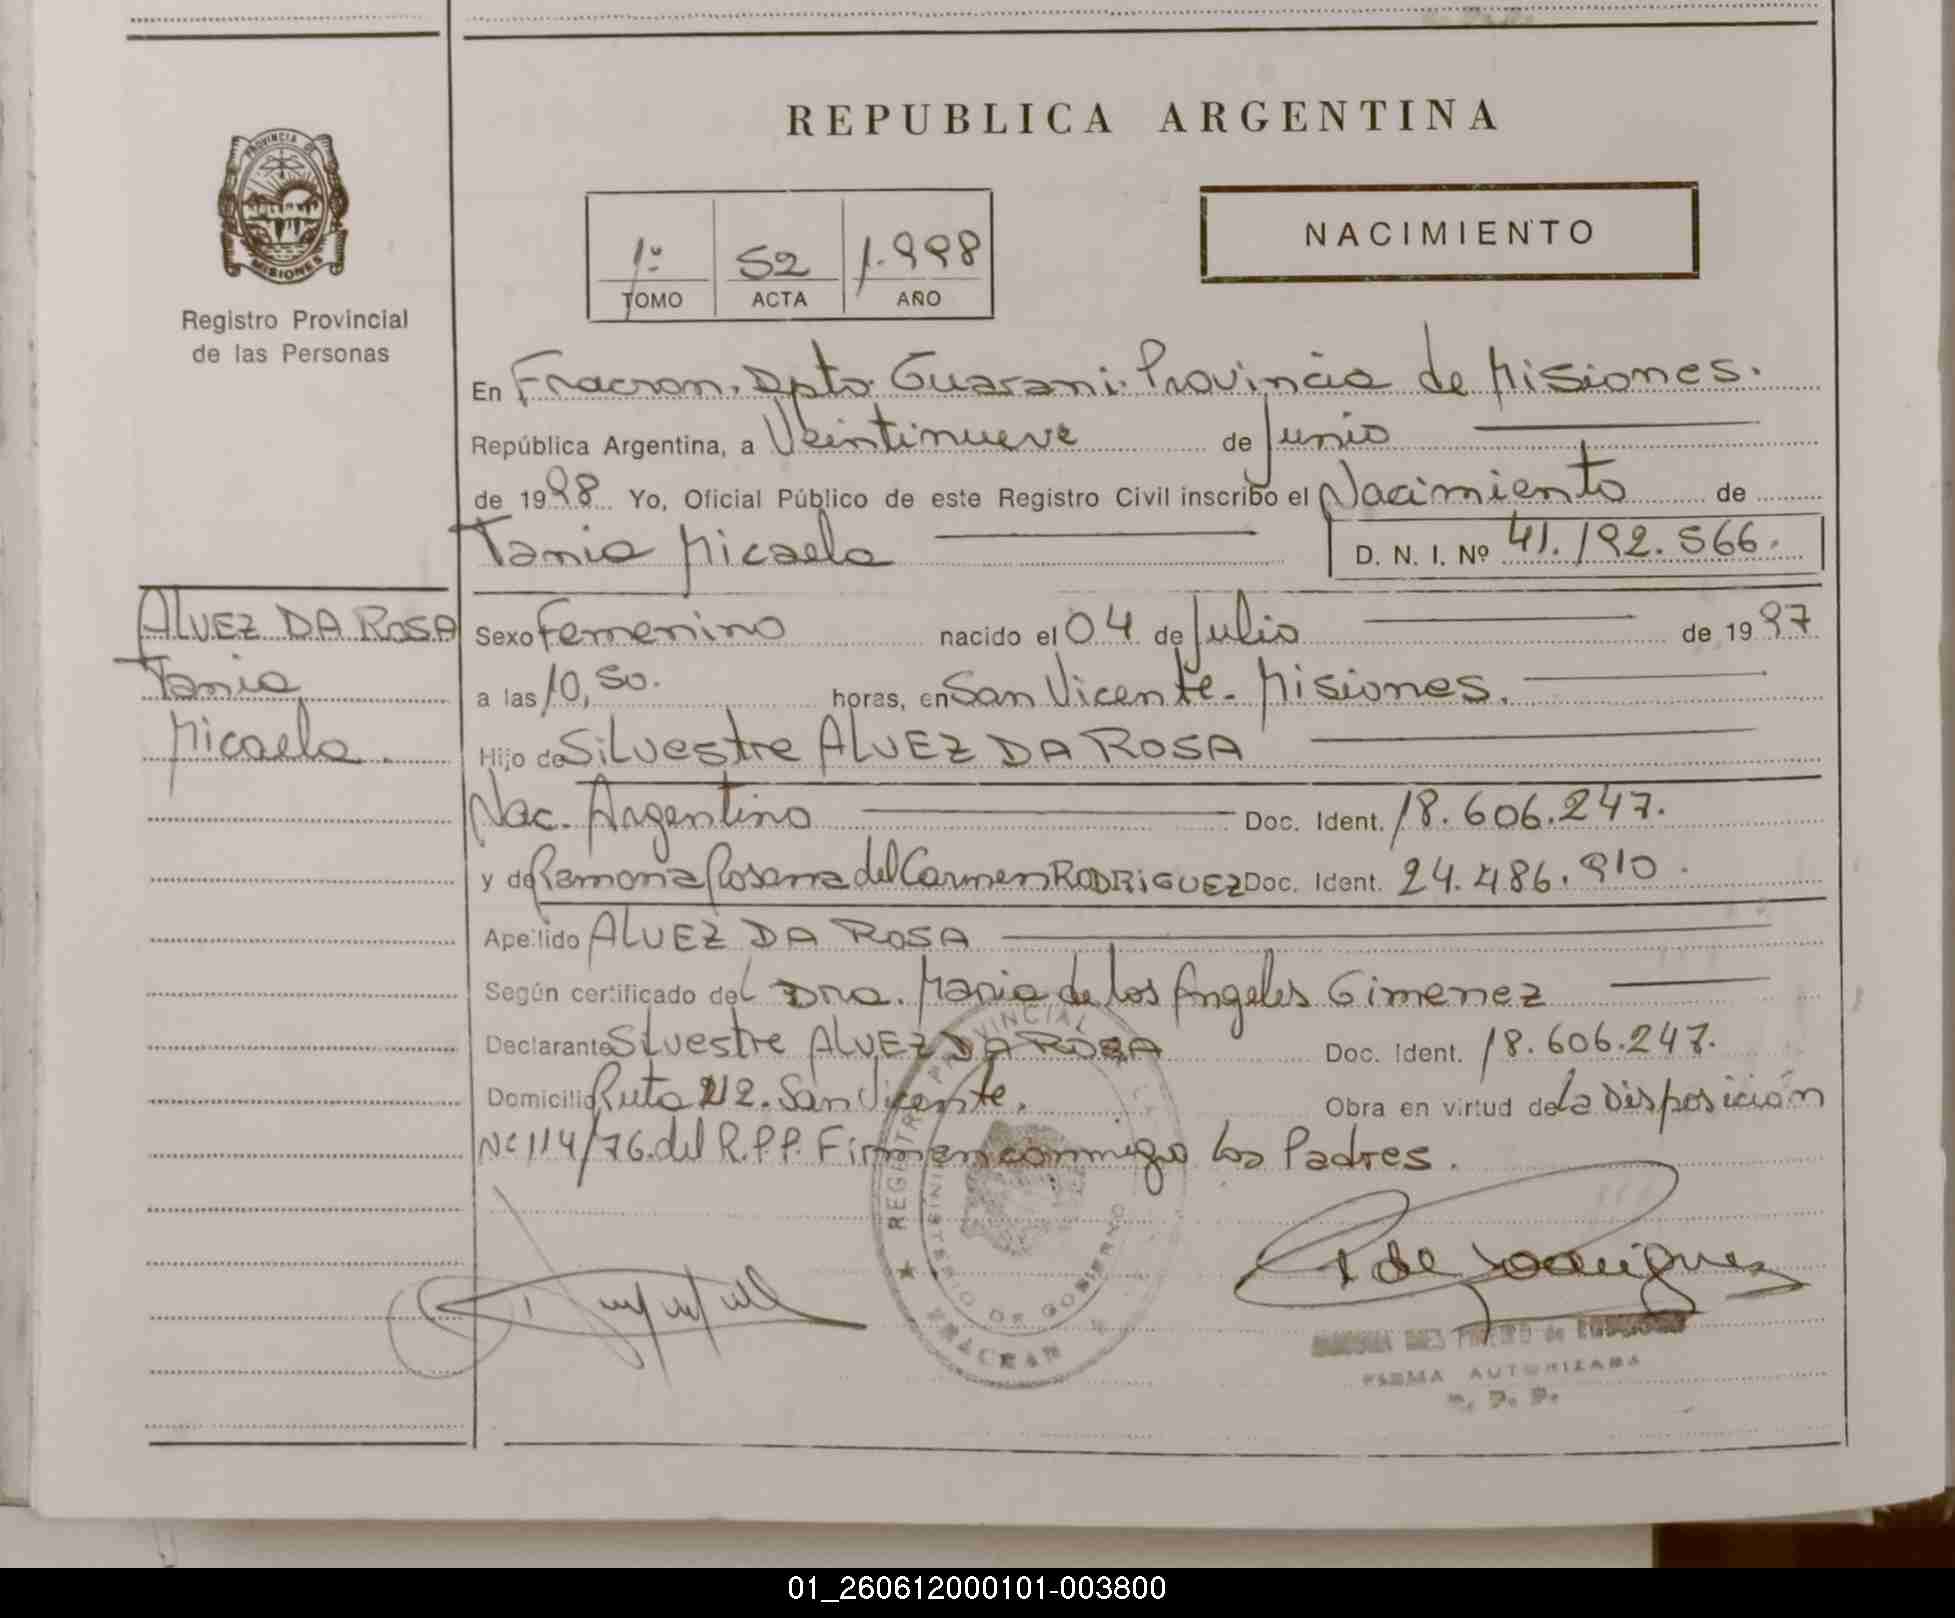 REPUBLICA ARGENTINA
PROVINCIA DE
MISIONES
Registro Provincial
de las Personas
NACIMIENTO
1º 52 1.998
TOMO ACTA AÑO
En Fracran. Dpto. Guarani. Provincia de Misiones.
República Argentina, a Veintinueve de Junio
de 1998 Yo, Oficial Público de este Registro Civil inscribo el Nacimiento de
Tania Micaela D. N. I. Nº 41.192.566.
ALVEZ DA ROSA
Tania
Micaela.
Sexo Femenino nacido el 04 de Julio de 1997
a las 10,50. horas, en San Vicente - Misiones.
Hijo de Silvestre ALVEZ DA ROSA
Nac. Argentino Doc. Ident. 18.606.247.
y de Ramona Rosana del Carmen RODRIGUEZ Doc. Ident. 24.486.910.
Apellido ALVEZ DA ROSA
Según certificado del Dra. Maria de los Angeles Gimenez
Declarante Silvestre ALVEZ DA ROSA Doc. Ident. 18.606.247.
Domicilio Ruta 212. San Vicente. Obra en virtud de la Disposición
Nº 114/76 del R.P.P. Firman conmigo los Padres.
REGISTRO PROVINCIAL
MINISTERIO DE GOBIERNO
FRACRAN
de Rodriguez
FIRMA AUTORIZADA
01_260612000101-003800